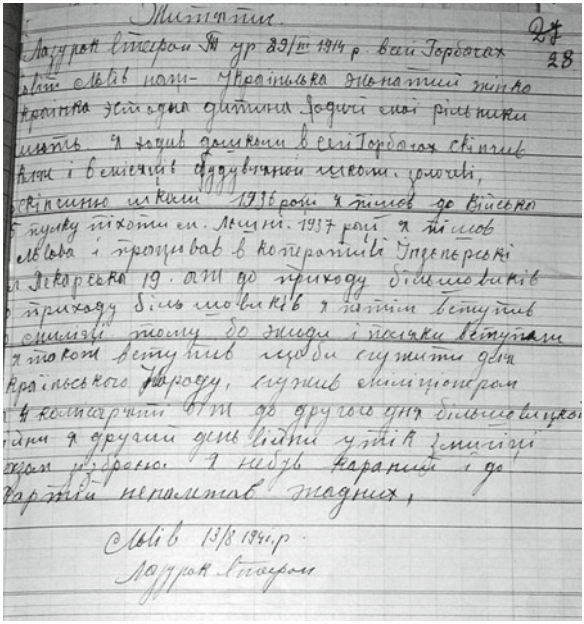 Життєпис.
27
28
Лазурок Стефан ур 29/III 1914 р. в селі Горбачах
овіт Львів нац- Українська жонатий жінка
країнка єстодна дитина Родичі мої рільники
ють. Я ходив дошколи в селі Горбачах скінчив
кляс і 8 місяців будувляной школи. золочеві,
скінчиню школи 1936 році я пішов до війська
пулку піхоти м. 1937 році я пішов
Львова і працював в коперативі
Лекарська 19. аж до приходу більшовиків
приходу більшовиків я потім вступив
міліції тому бо жиди і поляки вступали
я також вступив щоби служити для
країнського Народу, служив міліціонером
комісаріяті аж до другого дня більшовицкої
ійни я другий день війни утік зміліції
азом зброєю. Я небув караний і до
партій неналежав жадних,
Львів 13/8 1941.р.
Лазурок Стефан